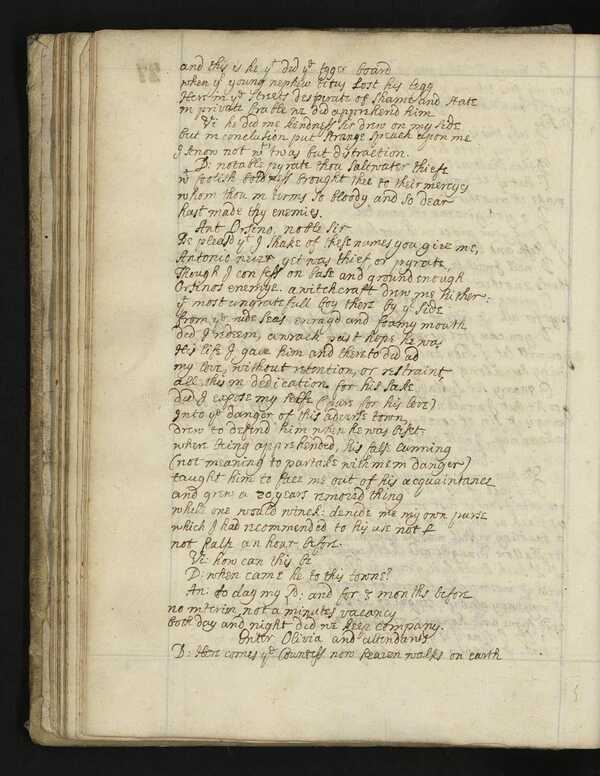 27
and this is he yt did ye tyger board
when yr young nephew titus Lost his legg
Here in ye streets desperate of shame and state
in private brable we did apprehend him
Vi: he did me kindness sir drew on my side
but in conclusion put strange speech upon me
I know not wt twas but distraction.
D: notable pyrate thou saltwater thiefe
wt foolish boldness brought thee to their mercys
whom thou in terms so bloody and so dear
hast made thy enemies.
Ant Orsino, noble sir
Be pleasd yt I shake of these names you give me,
Antonio never yet was thief or pyrate
Though I confess on base and ground enough
Orsinos enemye. a witchcraft drew me hither:
yt most ungratefull boy there by yr side
from ye rude seas enragd and foamy mouth
did I redeem, a wrack past hope he was
His life I gave him and thereto did ad
my love, without retention, or restraint,
all this in dedication for his sake
did I expose my selfe (pure for his love)
Into ye danger of this adverse town
drew to defend him when he was beset
where being apprehended, his false cunning
(not meaning to partake with mee in danger)
taught him to face me out of his acquaintance
and grew a 20 years removed thing
while one would winck: denide me my own purse
which I had recommended to his use
not half an hour before.
Vi: how can this be
D: when came he to this towne?
An: to day my D: and for 3 months before
no interim not a minutes vacancy
both day and night did we keep company.
Enter Olivia and attendants
D: Here comes ye Countess now heaven walks on earth